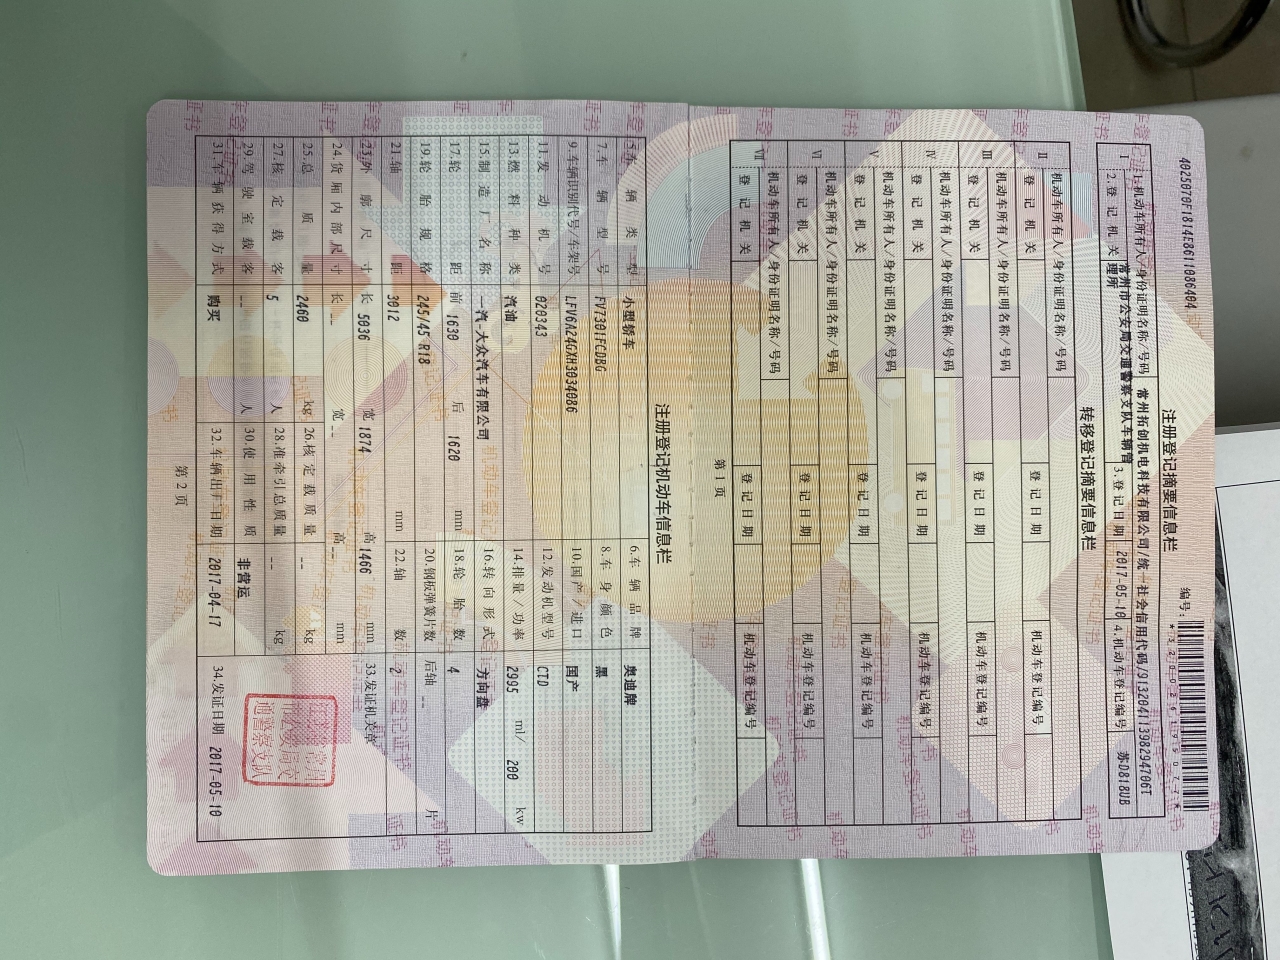 4025070F1814E8611086404
编号:
注册登记摘要信息栏
Ⅰ 1.机动车所有人/身份证明名称/号码 常州拓创机电科技有限公司/统一社会信用代码/91320411398294706T
2.登记机关 常州市公安局交通警察支队车辆管理所 3.登记日期 2017-05-10 4.机动车登记编号 苏D818UB
转移登记摘要信息栏
Ⅱ 机动车所有人/身份证明名称/号码
登记机关 登记日期 机动车登记编号
Ⅲ 机动车所有人/身份证明名称/号码
登记机关 登记日期 机动车登记编号
Ⅳ 机动车所有人/身份证明名称/号码
登记机关 登记日期 机动车登记编号
Ⅴ 机动车所有人/身份证明名称/号码
登记机关 登记日期 机动车登记编号
Ⅵ 机动车所有人/身份证明名称/号码
登记机关 登记日期 机动车登记编号
Ⅶ 机动车所有人/身份证明名称/号码
登记机关 登记日期 机动车登记编号
第1页
注册登记机动车信息栏
5.车辆类型 小型轿车 6.车辆品牌 奥迪牌
7.车辆型号 FV7301FCDBG 8.车身颜色 黑
9.车辆识别代号/车架号 LFV6A24GXH3034086 10.国产/进口 国产
11.发动机号 020343 12.发动机型号 CTD
13.燃料种类 汽油 14.排量/功率 2995 ml/ 200 kw
15.制造厂名称 一汽-大众汽车有限公司 16.转向形式 方向盘
17.轮距 前 1630 后 1620 mm 18.轮胎数 4
19.轮胎规格 245/45 R18 20.钢板弹簧片数 后轴 -- 片
21.轴距 3012 mm 22.轴数 2
23.外廓尺寸 长 5036 宽 1874 高 1466 mm 33.发证机关章
24.货厢内部尺寸 长 -- 宽 -- 高 -- mm
25.总质量 2460 kg 26.核定载质量 -- kg
27.核定载客 5 人 28.准牵引总质量 -- kg
29.驾驶室载客 -- 人 30.使用性质 非营运
31.车辆获得方式 购买 32.车辆出厂日期 2017-04-17 34.发证日期 2017-05-10
第2页